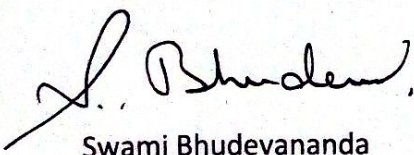 S. Bhudev.
Swami Bhudevananda